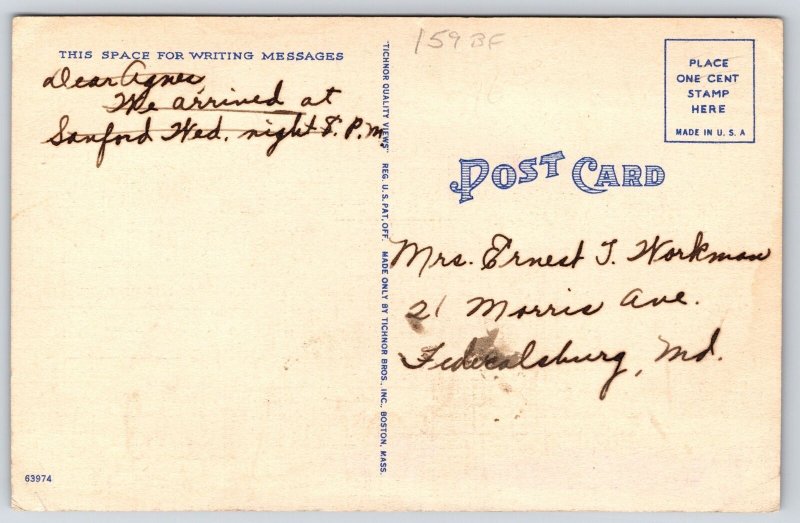 159 BF
THIS SPACE FOR WRITING MESSAGES
Dear Agnes
We arrived at
Sanford Wed. night 8. P.M.
"TICHNOR QUALITY VIEWS" REG. U. S. PAT. OFF. MADE ONLY BY TICHNOR BROS., INC., BOSTON, MASS.
PLACE
ONE CENT
STAMP
HERE
MADE IN U. S. A
POST CARD
Mrs. Ernest T. Workman
21 Morris Ave.
Federalsburg, Md.
63974